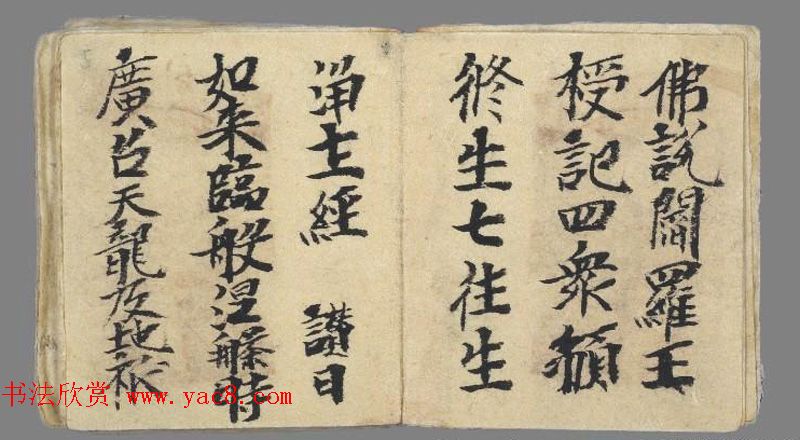 佛說閻羅王
授記四衆預
修生七往生
淨土經 讚曰
如来臨般涅槃時
廣召天龍及地祇
书法欣赏 www.yac8.com